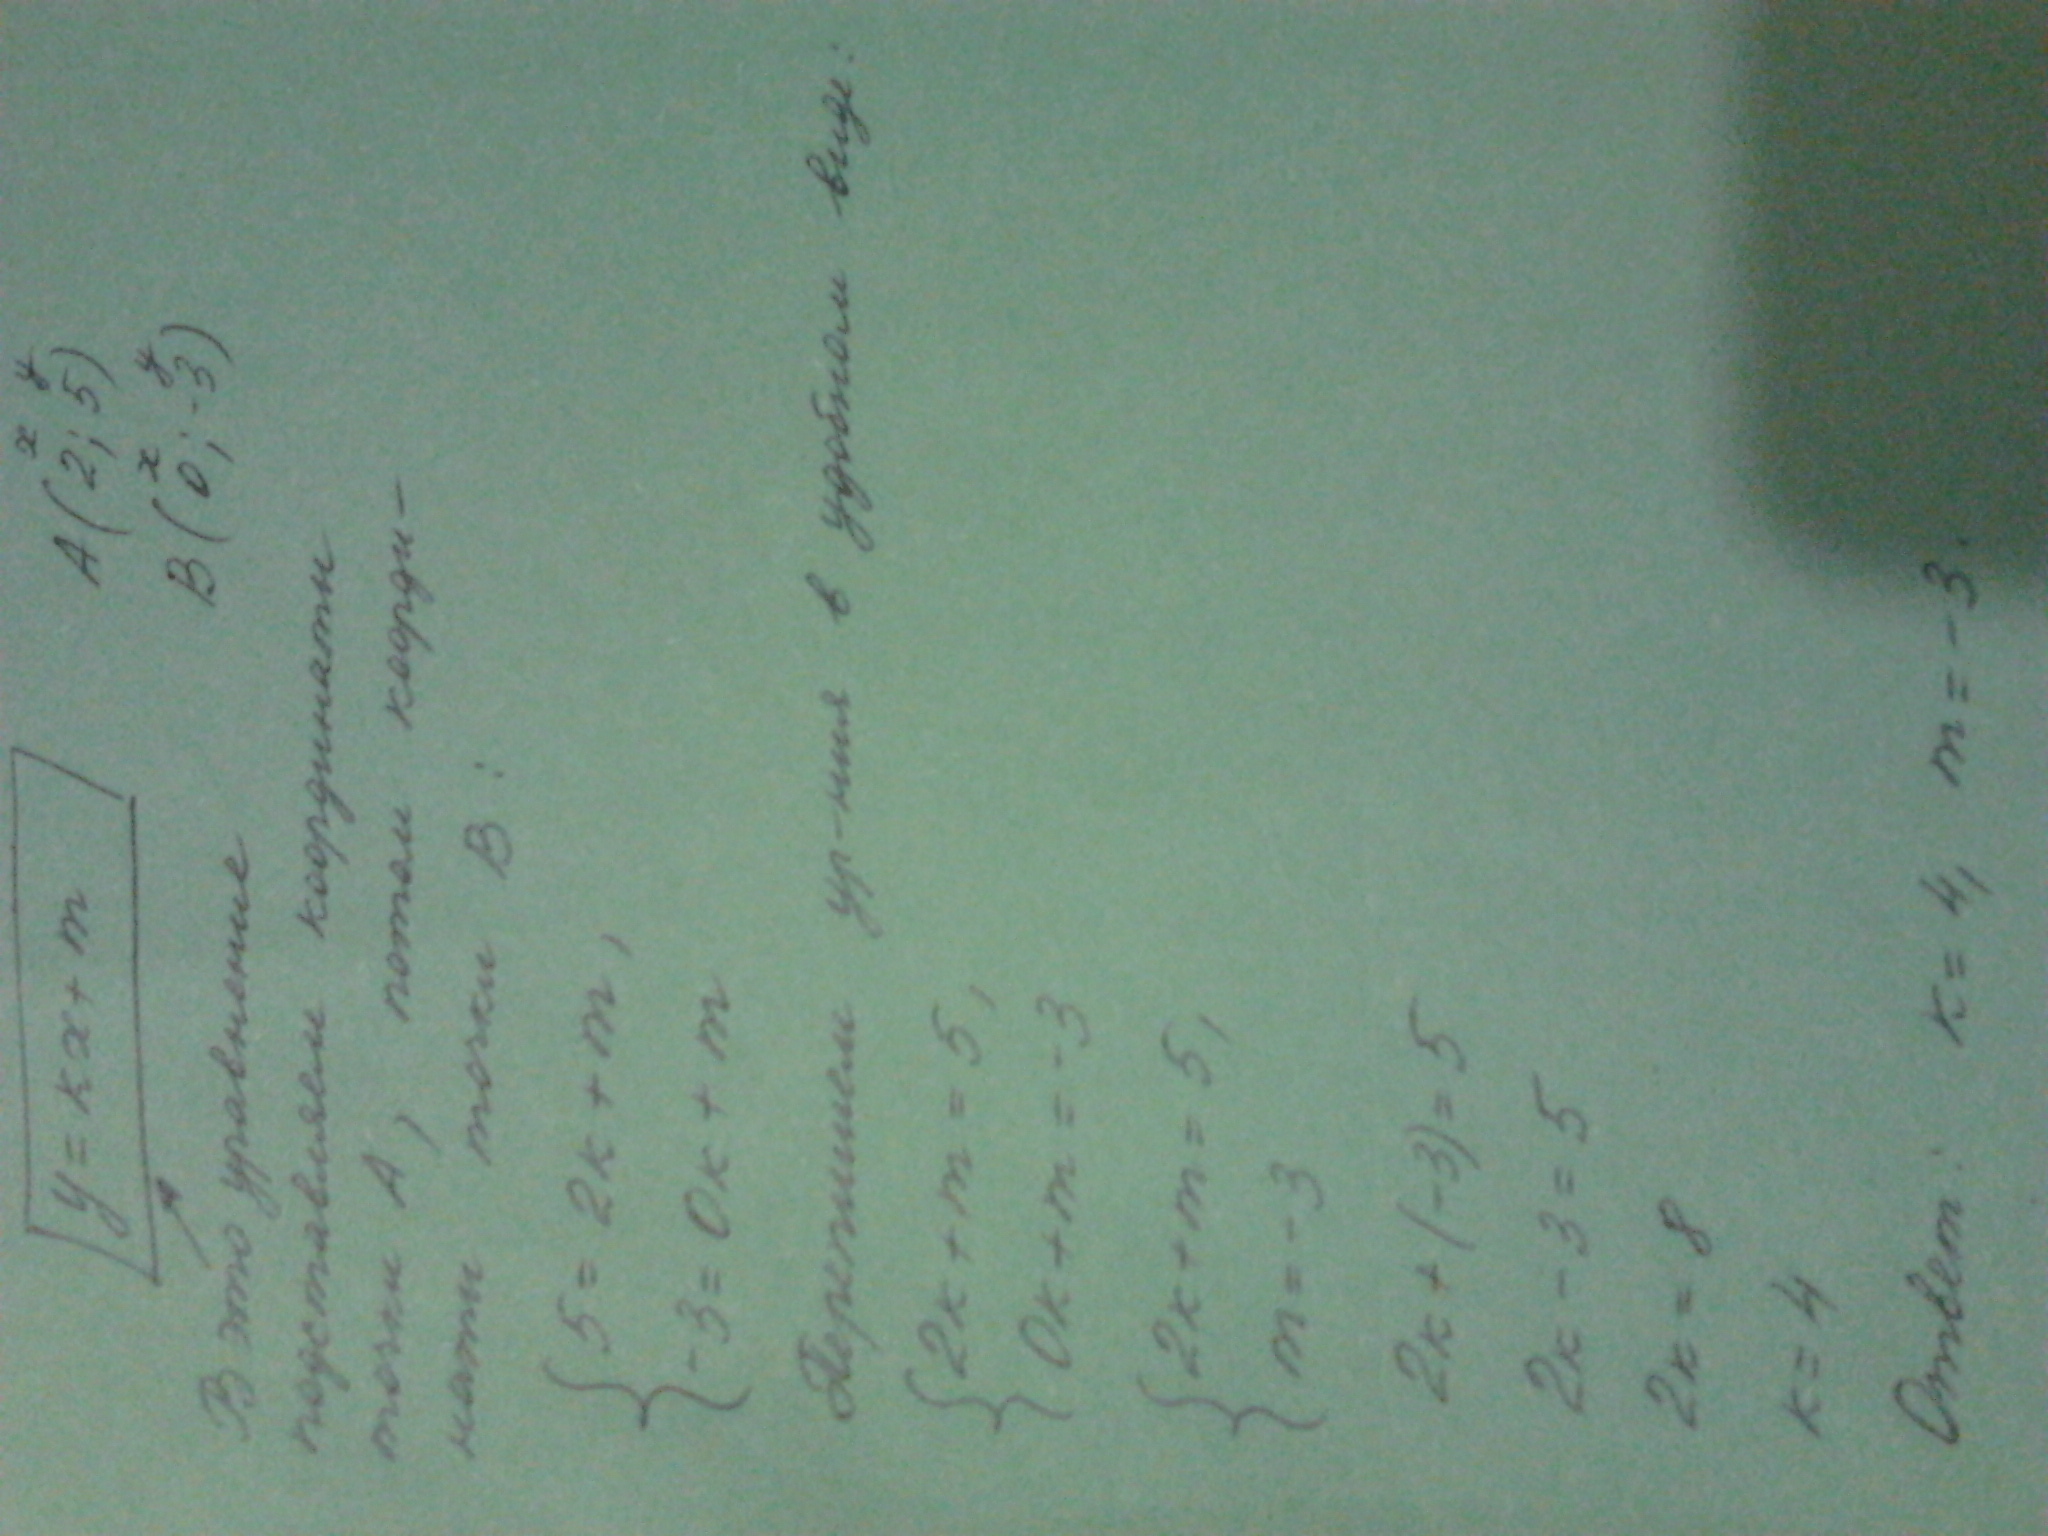 y = kx + m
x y
A (2; 5)
x y
B (0; -3)
В это уравнение
подставляем координаты
точки А, потом коорди-
наты точки В:
{ 5 = 2k + m,
{ -3 = 0k + m
Перепишем ур-ния в удобном виде:
{ 2k + m = 5,
{ 0k + m = -3
{ 2k + m = 5,
{ m = -3
2k + (-3) = 5
2k - 3 = 5
2k = 8
k = 4
Ответ: k = 4, m = -3.